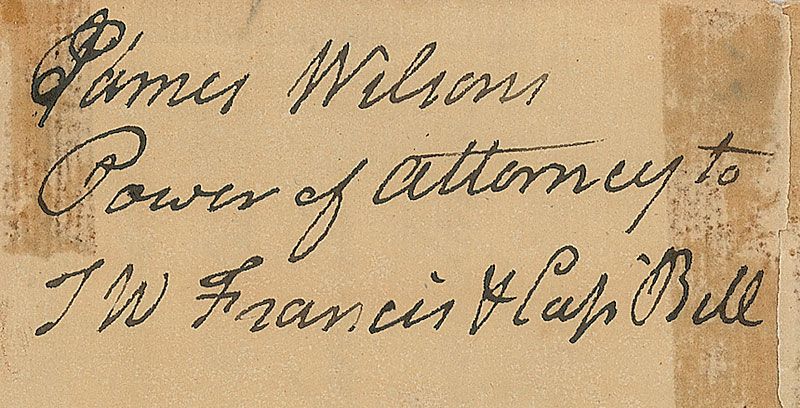 James Wilsons
Power of attorney to
T W Francis & Cap' Bell